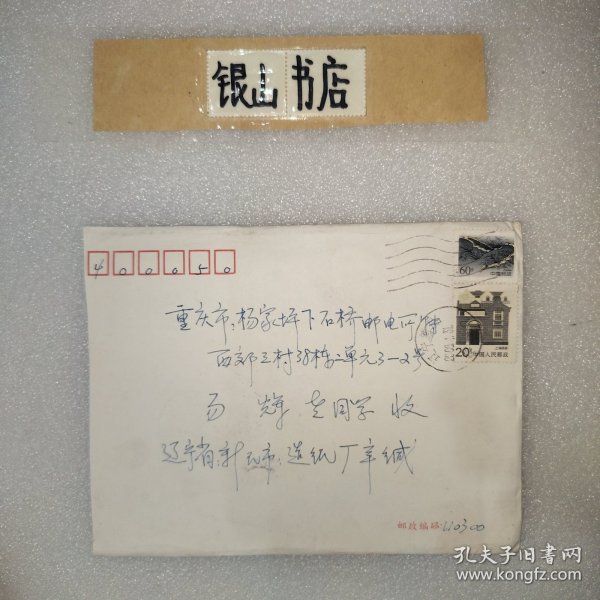 银山书店
400050
60分
中国邮政
重庆市杨家坪下石桥邮电所转
西郊三村38栋二单元3-2号
同学收
辽宁省新民市造纸厂辛缄
20分 中国人民邮政
邮政编码:110300
孔夫子旧书网
www.kongfz.com